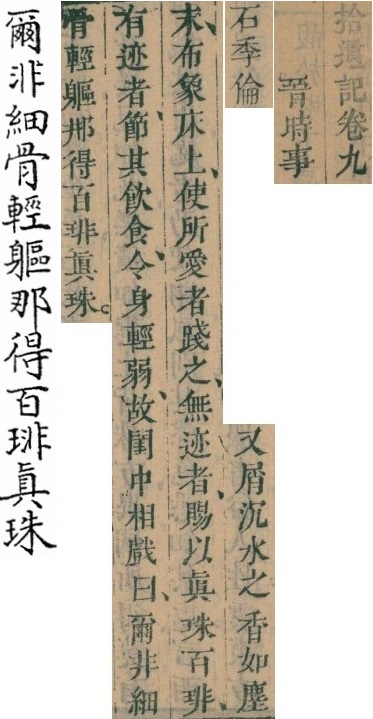 拾遺記卷九
晉時事
石季倫
又屑沉水之香如塵
末、布象床上、使所愛者踐之、無迹者、賜以真珠百琲、
有迹者、節其飲食、令身輕弱、故閨中相戲曰、爾非細
骨輕軀那得百琲真珠。
爾非細骨輕軀那得百琲真珠